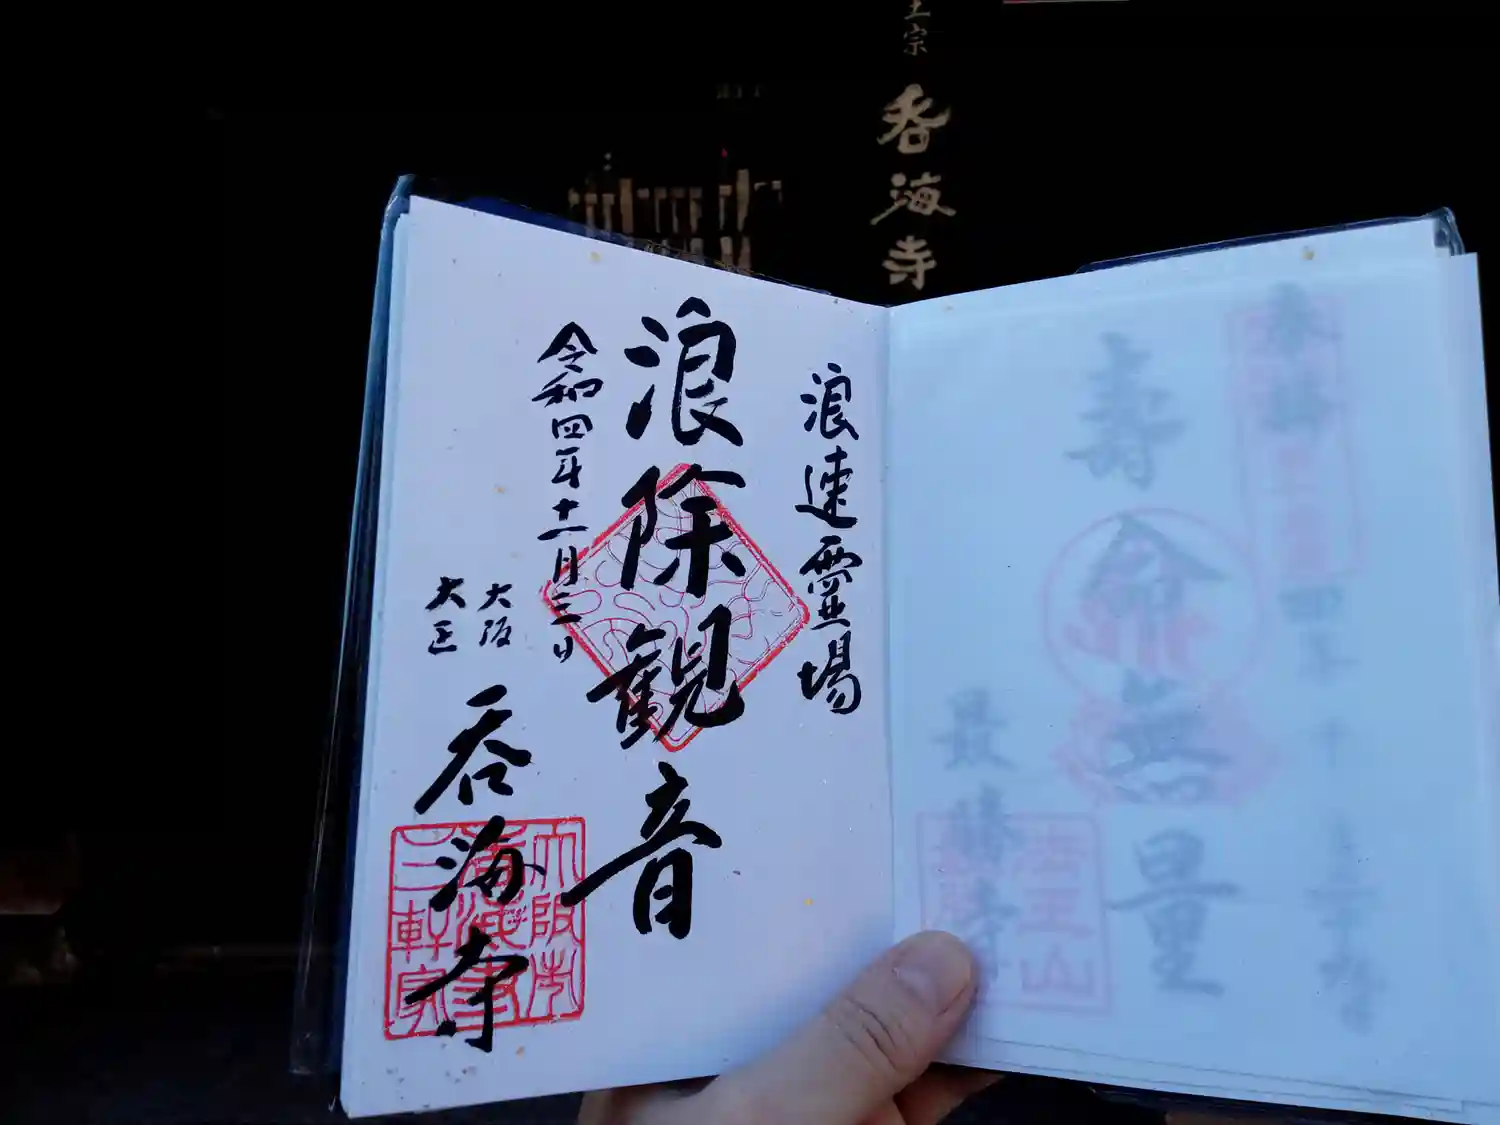 宗
呑海寺
浪速霊場
浪除観音
令和四年十一月三日
大阪
大正
呑海寺
大阪市
三軒家
寿命無量
最勝寺